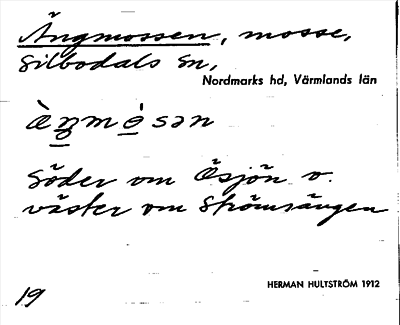 Ängmossen, mosse,
Silbodals sn,
Nordmarks hd, Värmlands län
Söder om Ösjön o.
väster om Strömsängen
HERMAN HULTSTRÖM 1912
19